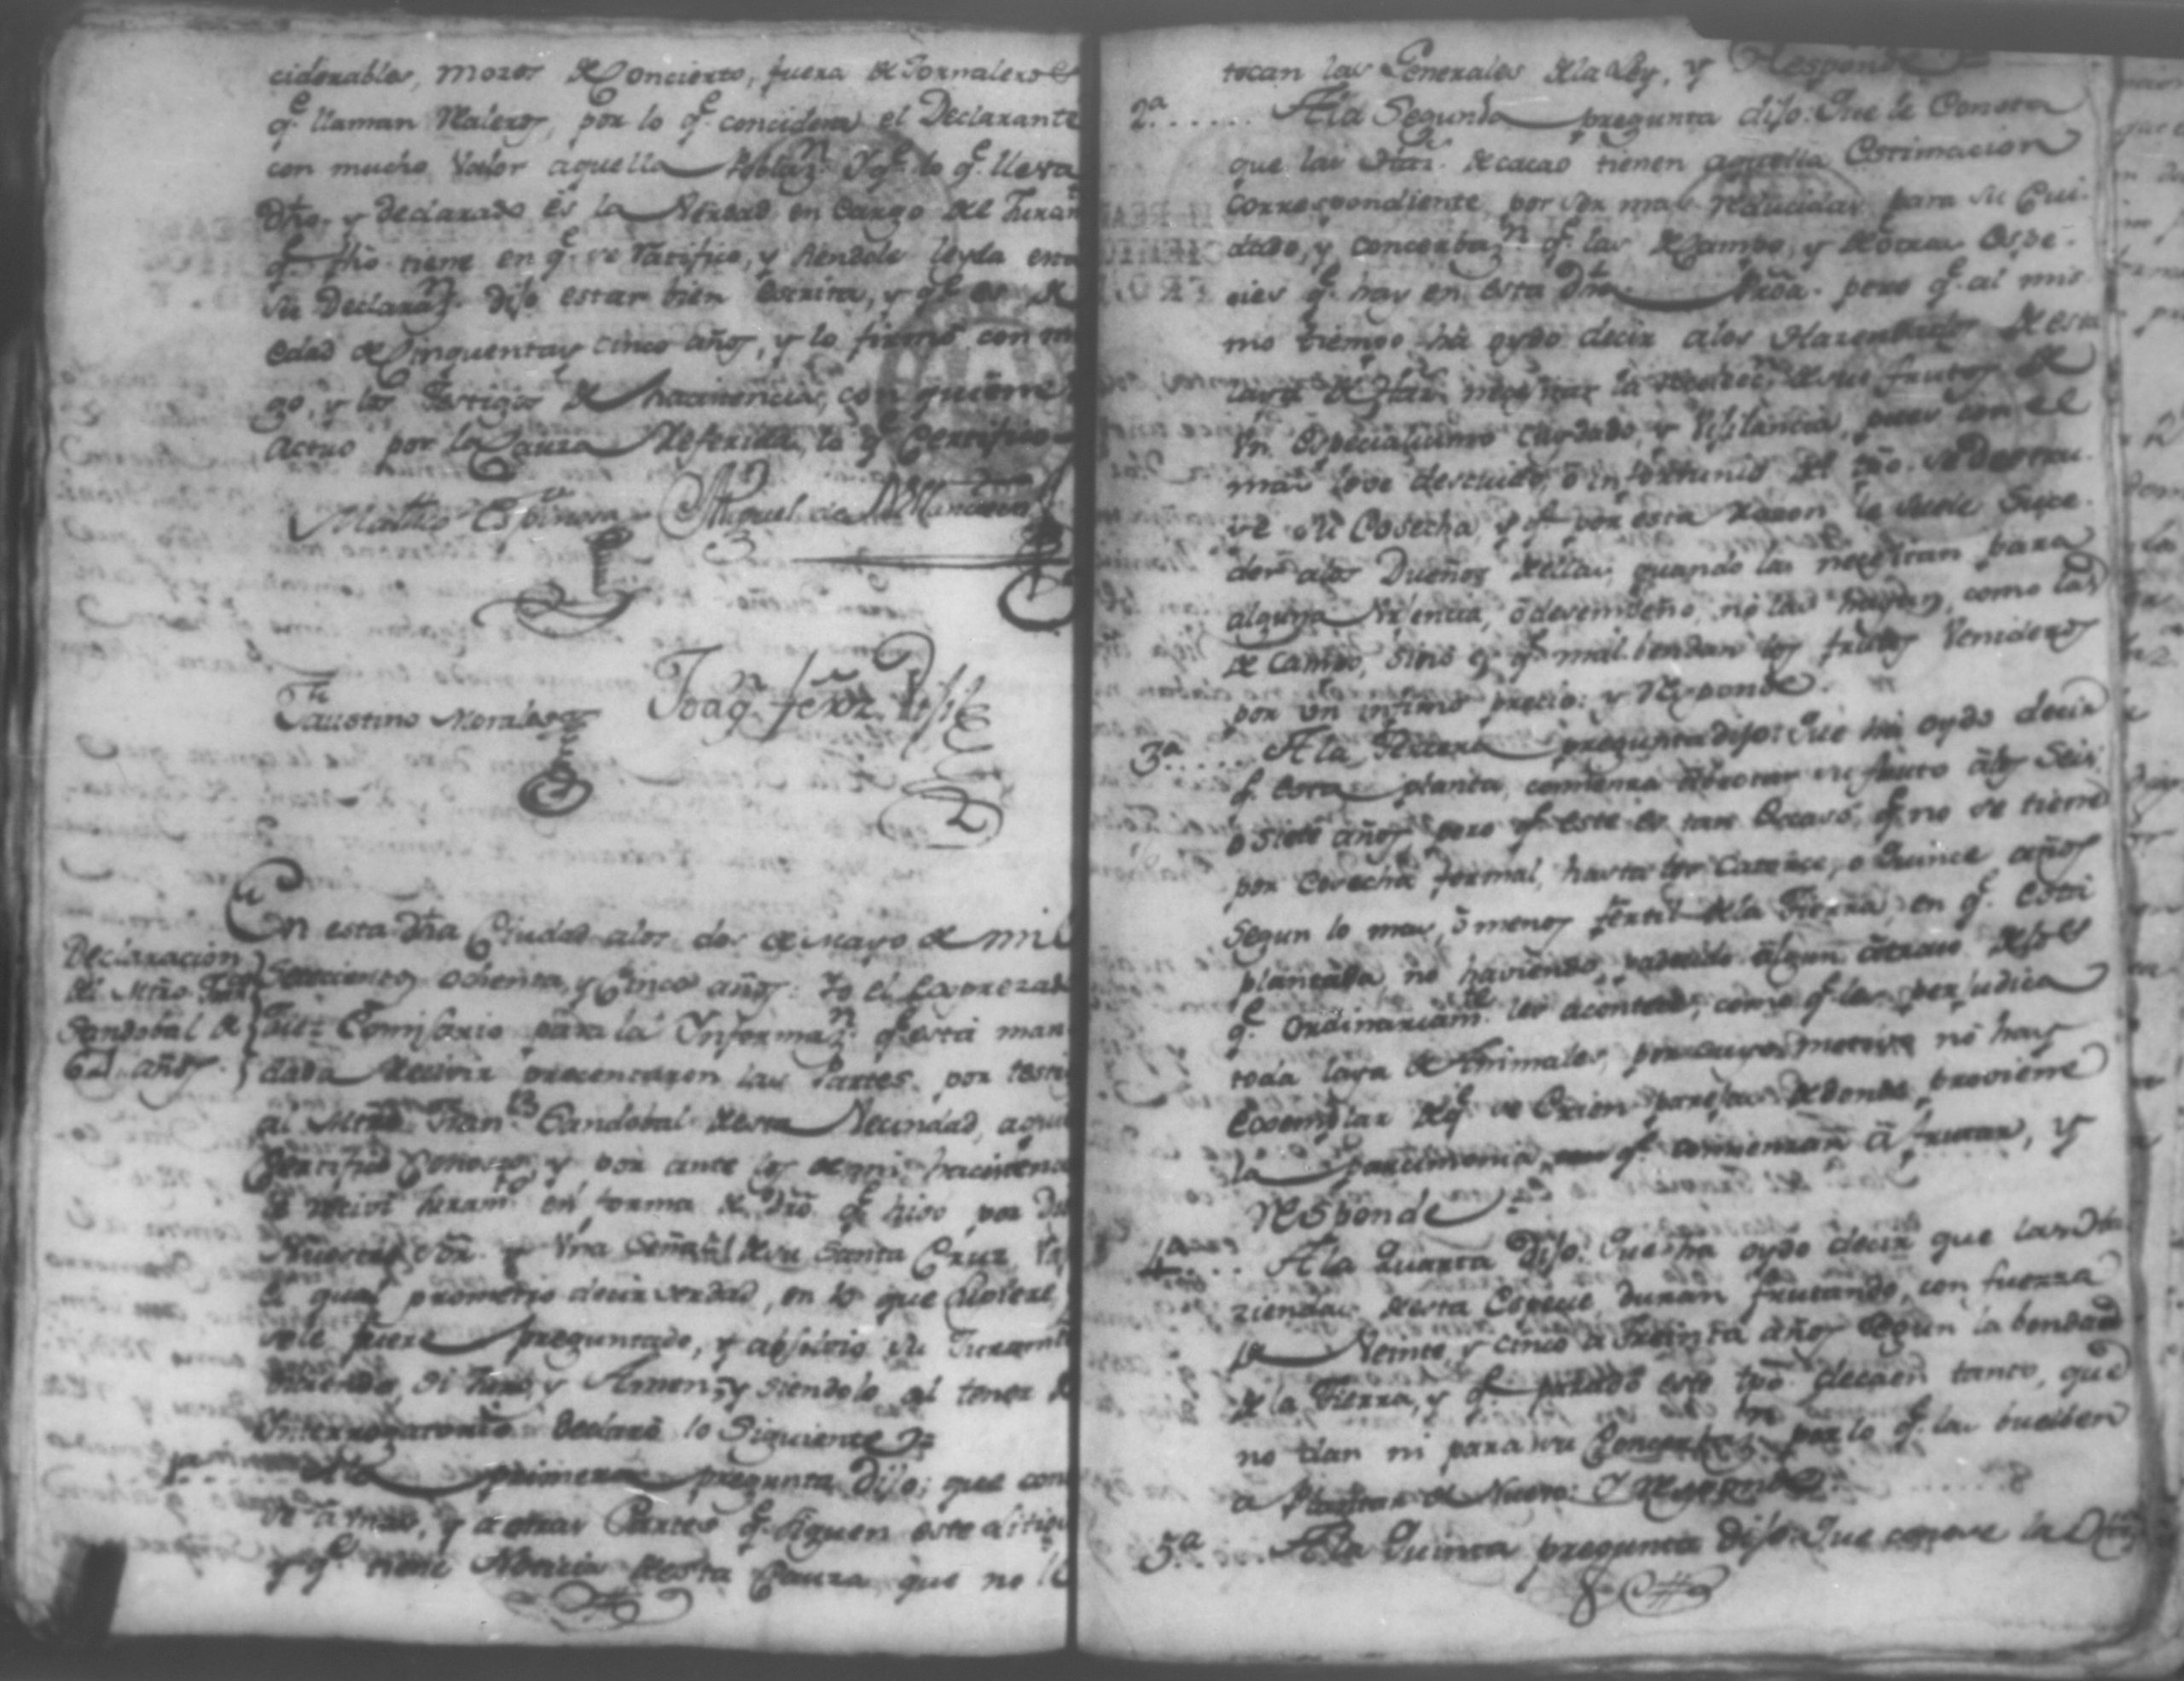 ciderables, mozos de Concierto, fuera de Jornaleros
q.e llaman Maleros, por lo q.e concidera el Declarante
con mucho Valor aquella Poblaz.n Y q.e lo q.e lleva
dho, y declarado es la Verdad en cargo del Juram
q.e fho tiene en q.e se ratifico, y siendole leyda esta
su Declaraz.n dijo estar bien escrita, y q.e es de
edad de Cinquenta y cinco años, y lo firmó con m
go, y los Testigos de hacistencia, con quienes
Actuo por la Causa Referida, lo q.e Certifico
Matheo Espinosa Miguel de
Faustino Morales Joaq.n Ferrz
En esta dha Ciudad a los dos de Mayo de mil
Declaracion
del Mtro Fran
Sandobal de
61 años
Setecientos ochenta, y Cinco años: Yo el Exprezado
Juez Comisario para la Ynformaz.n q.e está man
dada Recivir precentaron las Partes por testi
al Mtro Fran.co Sandobal desta Vecindad, aquien
Certifico Conosco, y por ante los de mi hacistencia
le recivi Juram.to en forma de Dro q.e hiso por Dio
Nuestro Señ. y Una Señal de su Santa Cruz,
el qual prometio decir verdad, en lo que supiere
le fuere preguntado, y absolvio su Juram
diciendo, si Juro, y Amen, y siendolo al tenor de
Interrogatorio Declaró lo Siguiente
1.a A la primera pregunta Dijo: que cono
se á unas, y a otras Partes q.e siguen este Litigio
y q.e tiene Noticia desta Causa, que no le
tocan las Generales dela Ley, y Responde
2.a A la Segunda pregunta dijo: Que le Consta
que las Haz. de cacao tienen aquella Estimacion
Correspondiente, por ser mas reducidas para su Cui
dado, y Concerbaz.n q.e las de Campo, y de otras Espe
cies q.e hay en esta dha Proa. pero q.e al mis
mo tiempo há oydo decir a los Hazendados de esta
laya de Haz. necesitar la de sus frutos de
Un Especialisimo Cuydado, y Vijilancia, pues con el
mas leve descuido, ó infortunio del tpo. se destru
ye su Cosecha, y q.e por esta Razon le suele Suce
der a los Dueños dellas, quando las necesitan para
alguna Urgencia, ó desempeño, no las hayan, como las
de Campo, sino es q.e mal bendan los frutos Venideros
por un infimo precio: y Responde.
3.a A la Tercera pregunta dijo: Que ha oydo decir
q.e esta planta, comienza á brotar su fruto á los Seis
o Siete años, pero q.e este es tan Escaso, q.e no se tiene
por Cosecha formal, hasta los Catorce, o Quince años
Segun lo mas, ó menos fertil dela Tierra en q.e está
plantada, no haviendo padecido algun atraso delos
q.e Ordinariam.te les acontece, como q.e las perjudica
toda laya de Animales, por cuyo motivo no hay
Exsemplar de q.e se Crien parejas de donde proviene
la parcimonia q.e comienzan á frutar, y
Responde
4.a A la Quarta Dijo: Que ha oydo decir que las Ha
ziendas desta Especie, duran frutando, con fuerza
de Veinte, y cinco a Treinta años segun la bondad
de la Tierra, y q.e pasado este tpo decaen tanto, que
no dan ni para su Concerbaz.n por lo q.e las buelben
a Plantar de Nuevo: Y Responde
5.a A la Quinta pregunta Dijo: Que conose la